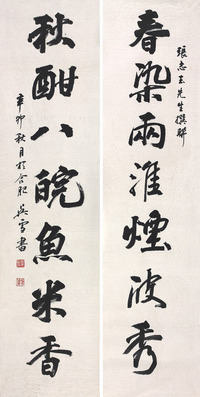 張志玉先生撰聯
春染兩淮煙波秀
秋酣八皖魚米香
辛卯秋月於合肥 吳雪書